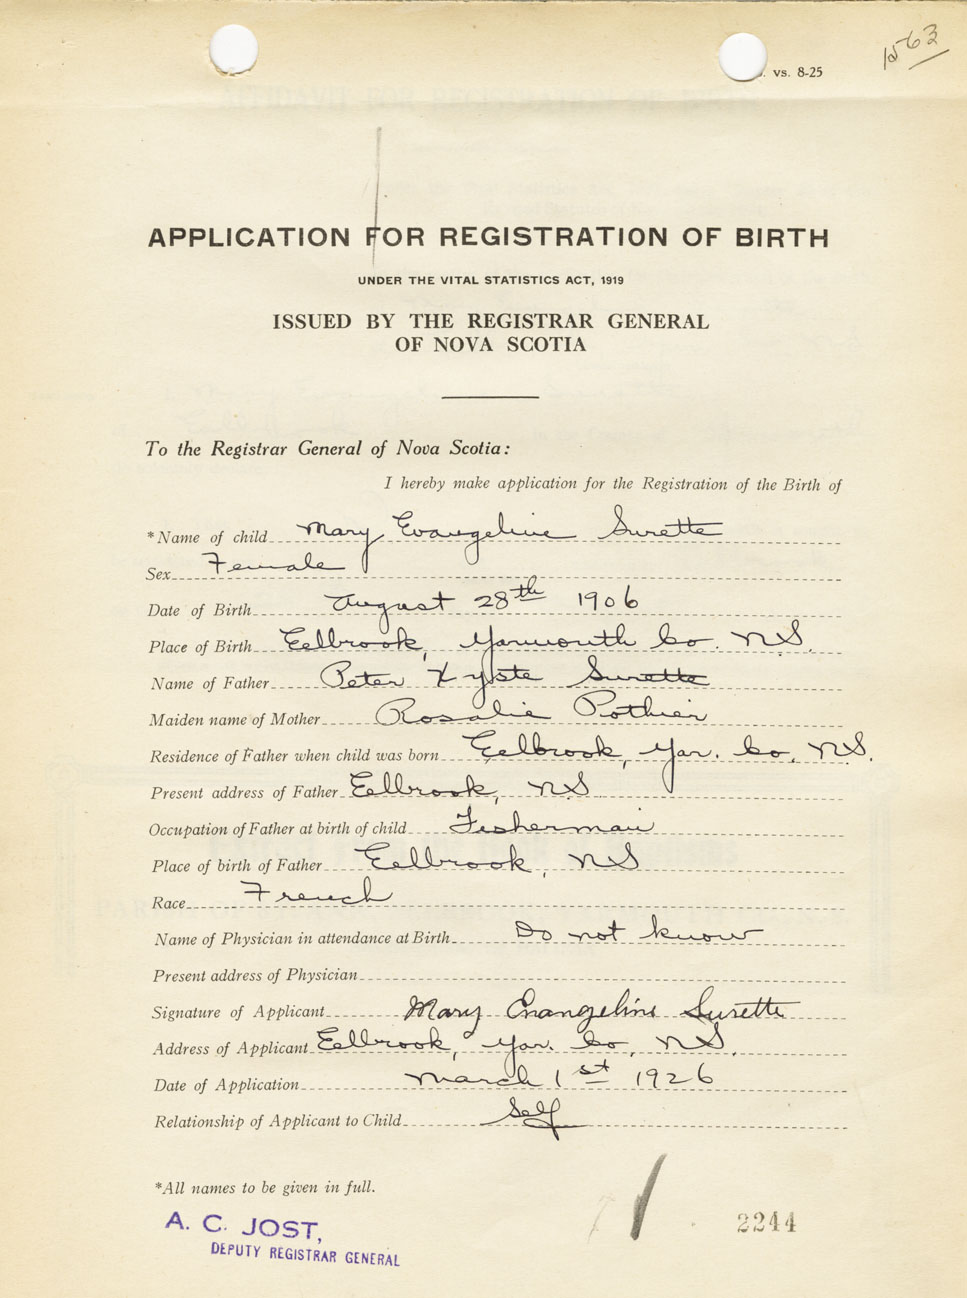 1563
. vs. 8-25
APPLICATION FOR REGISTRATION OF BIRTH
UNDER THE VITAL STATISTICS ACT, 1919
ISSUED BY THE REGISTRAR GENERAL
OF NOVA SCOTIA
To the Registrar General of Nova Scotia:
I hereby make application for the Registration of the Birth of
*Name of child Mary Evangeline Surette
Sex Female
Date of Birth August 28th 1906
Place of Birth Eelbrook, Yarmouth Co. N.S.
Name of Father Peter Xyste Surette
Maiden name of Mother Rosalie Pothier
Residence of Father when child was born Eelbrook, Yar. Co. N.S.
Present address of Father Eelbrook, N.S
Occupation of Father at birth of child Fisherman
Place of birth of Father Eelbrook, N.S
Race French
Name of Physician in attendance at Birth Do not know
Present address of Physician
Signature of Applicant Mary Evangeline Surette
Address of Applicant Eelbrook, Yar. Co, N.S.
Date of Application March 1st 1926
Relationship of Applicant to Child Self
*All names to be given in full.
A. C. JOST,
DEPUTY REGISTRAR GENERAL
2244